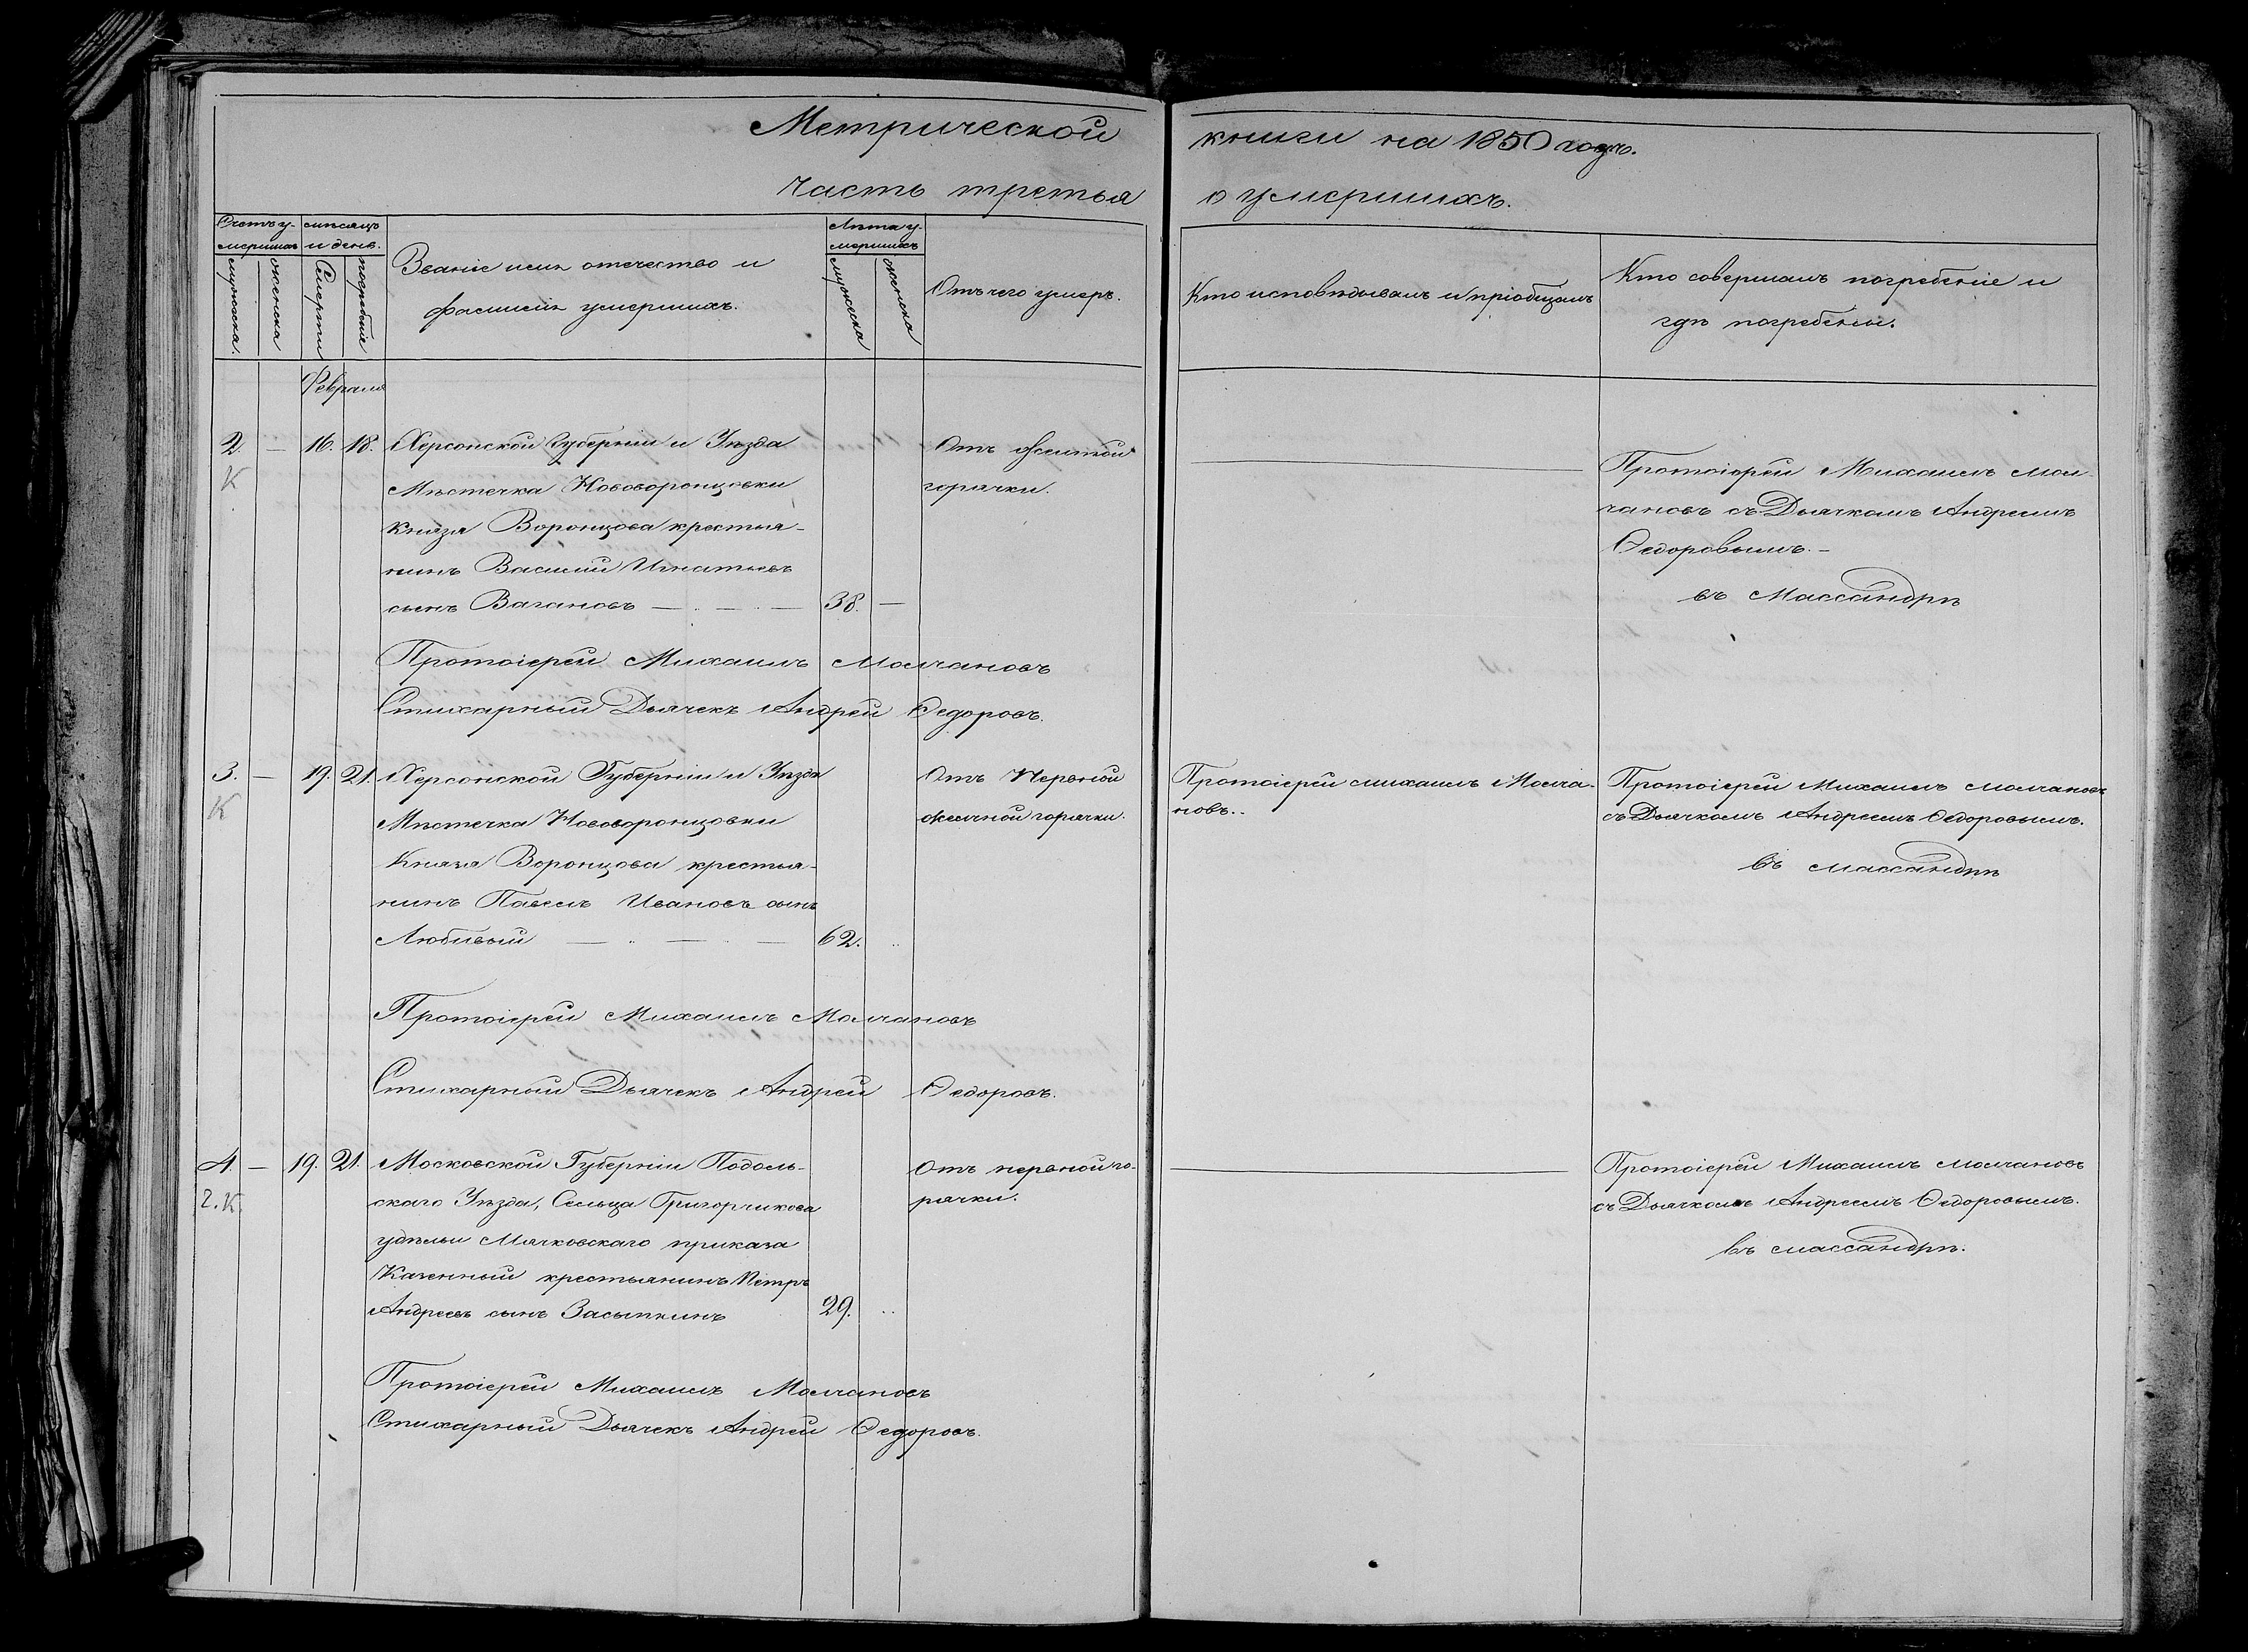 Метрической книги на 1850 годъ.
Часть третья о умершихъ.
Счетъ у-
мершихъ
мѣсяцъ
и день.
мужеска.
женска
Смерти
погребенія
Званіе имя отечество и
фамилія умершихъ.
Лѣта у-
мершихъ
мужеска
женска
Отъ чего умеръ.
Кто исповѣдывалъ и пріобщалъ
Кто совершалъ погребеніе и
гдѣ погребены.
Февраля
2. — 16. 18. Херсонской Губерніи и Уѣзда
К
Мѣстечка Нововоронцовки
Князя Воронцова крестья-
нинъ Василій Игнатьевъ
сынъ Вагановъ — . — . — 38. —
Отъ желтой
горячки.
Протоіерей Михаилъ Мол-
чановъ съ Дьячкомъ Андреемъ
Ѳедоровымъ. —
въ Массандрѣ
Протоіерей Михаилъ Молчановъ
Стихарный Дьячекъ Андрей Ѳедоровъ.
3. — 19. 21. Херсонской Губерніи и Уѣзда
К
Мѣстечка Нововоронцовки
Князя Воронцова крестья-
нинъ Павелъ Ивановъ сынъ
Любивый — .. — .. — 62. ..
Отъ Нервной
желчной горячки.
Протоіерей Михаилъ Молча-
новъ..
Протоіерей Михаилъ Молчановъ
съ Дьячкомъ Андреемъ Ѳедоровымъ.
въ Массандрѣ
Протоіерей Михаилъ Молчановъ
Стихарный Дьячекъ Андрей Ѳедоровъ.
4. — 19. 21. Московской Губерніи Подоль-
2. К.
скаго Уѣзда, Сельца Григорчикова
удѣльн Мячковскаго приказа
Казенный крестьянинъ Петръ
Андреевъ сынъ Засыпкинъ 29. ..
Отъ нервной го-
рячки.
Протоіерей Михаилъ Молчановъ
съ Дьячкомъ Андреемъ Ѳедоровымъ.
въ Массандрѣ.
Протоіерей Михаилъ Молчановъ
Стихарный Дьячекъ Андрей Ѳедоровъ.